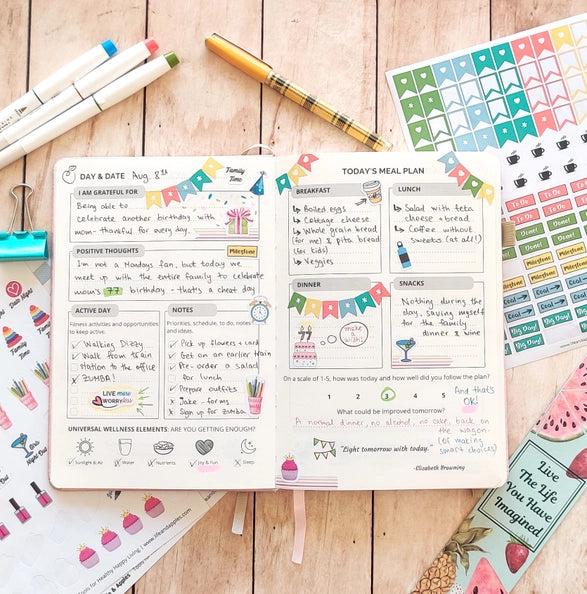 DAY & DATE Aug. 8th
Family
Time
I AM GRATEFUL FOR
Being able to
celebrate another birthday with
mom - thankful for every day.
POSITIVE THOUGHTS
Milestone
I'm not a Mondays fan, but today we
meet up with the entire family to celebrate
mom's 77 birthday - that's a cheat day
ACTIVE DAY
Fitness activities and opportunities
to keep active.
Walking Dizzy
Walk from train
station to the office
ZUMBA!
LIVE more
WORRY less
NOTES
Priorities, schedule, to do, notes
and ideas.
Pick up flowers + card
Get on an earlier train
Pre-order a salad
for lunch
Prepare outfits
Sign up for zumba
UNIVERSAL WELLNESS ELEMENTS: ARE YOU GETTING ENOUGH?
Sunlight & Air
Water
Nutrients
Joy & Fun
Sleep
TODAY'S MEAL PLAN
BREAKFAST
Boiled eggs
Cottage cheese
Whole grain bread
(for me) & pita bread
(for kids)
Veggies
LUNCH
Salad with feta
cheese + bread
Coffee without
sweets (at all!)
DINNER
77
make
a
wish
SNACKS
Nothing during the
day, saving myself
for the family
dinner & wine
On a scale of 1-5, how was today and how well did you follow the plan?
1 2 3 4 5
And that's
OK!
What could be improved tomorrow?
A normal dinner, no alcohol, no cake, back on
the wagon.
(of making
smart choices)
"Light tomorrow with today."
-Elizabeth Browning
Date Night
Girls
Night Out
Tools for Healthy Happy Living | www.lifeandapples.com
To Do
Done!
Milestone
Goal
Big Day!
Live
The Life
You Have
Imagined